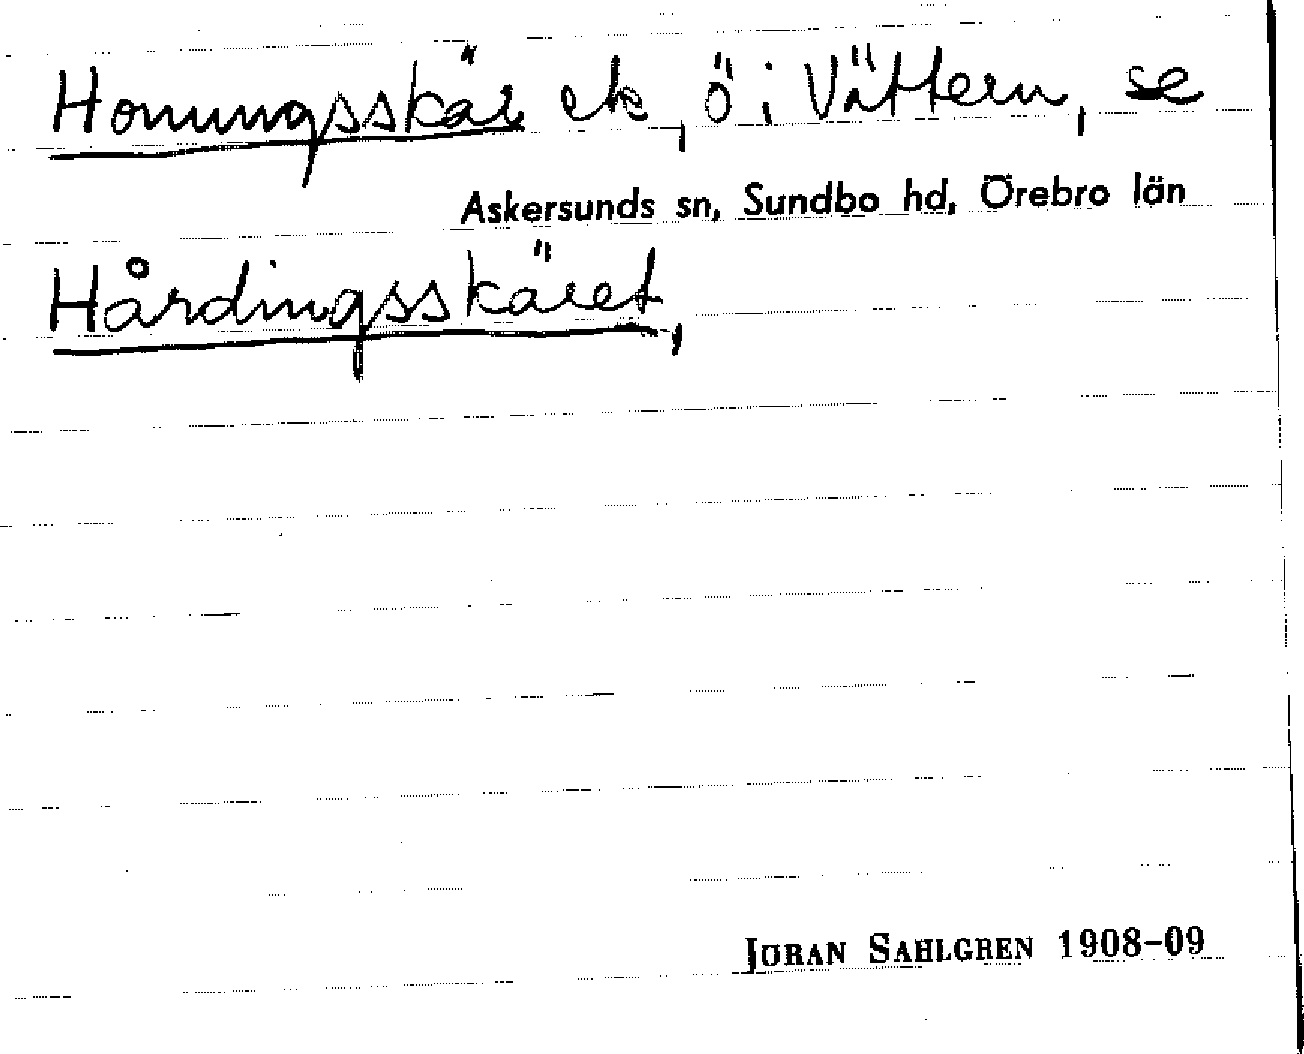 Honungsskär ek, ö i Vättern, se
Askersunds sn, Sundbo hd, Örebro län
Hårdingsskäret,
JÖRAN SAHLGREN 1908-09